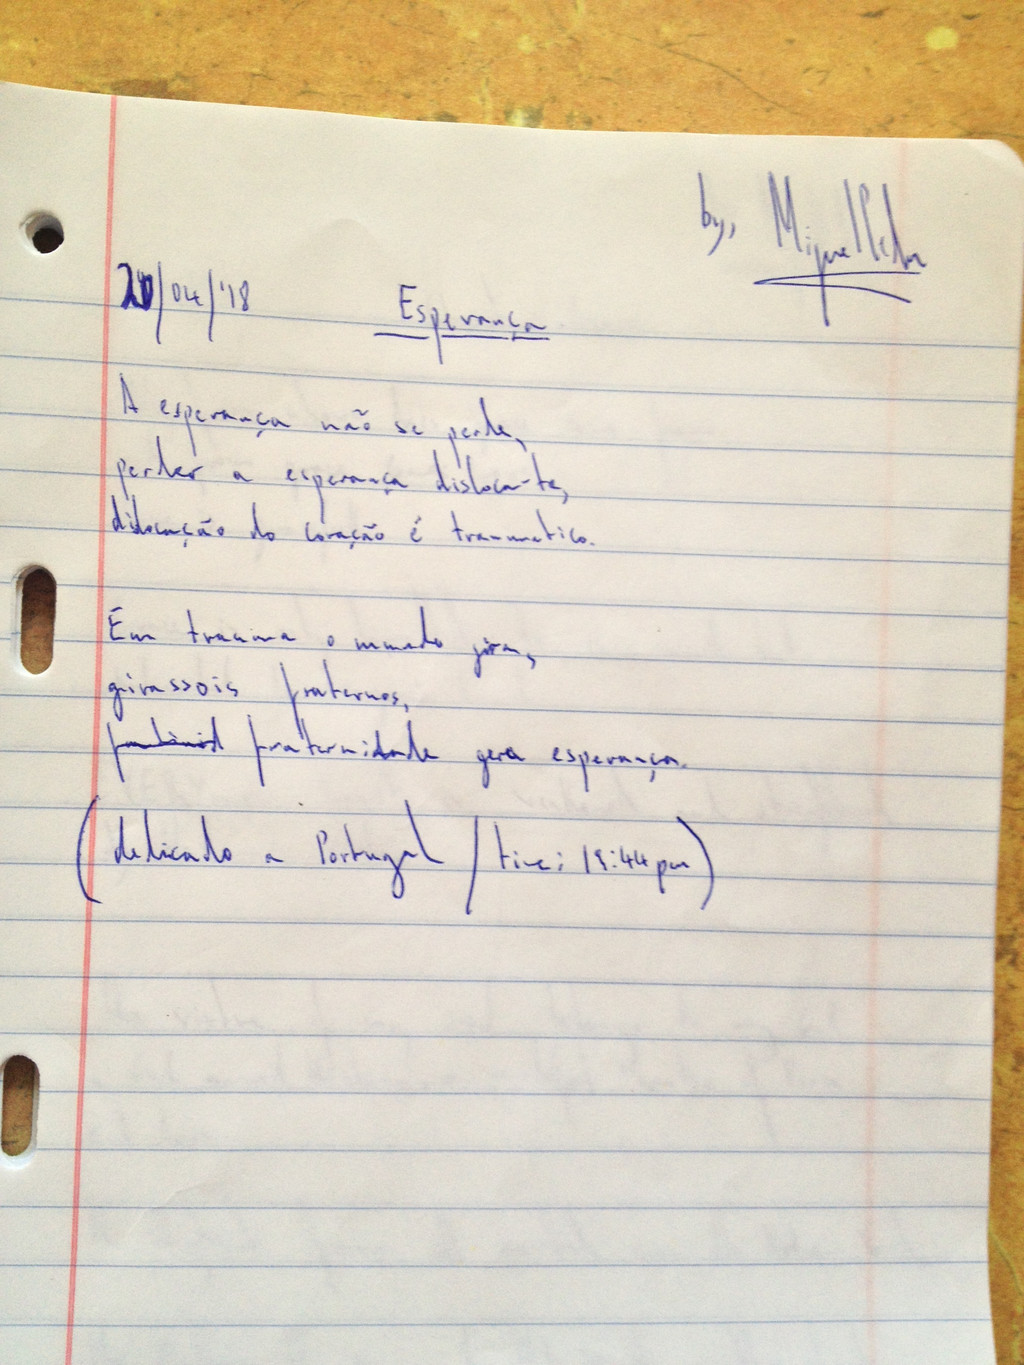 by, Miguel
20/04/'18
Esperança
A esperança não se perde,
perder a esperança disloca-te,
dislocação do coração é traumatico.
Em trauma o mundo gira,
girassois fraternos,
fraternidade gera esperança.
(dedicado a Portugal / time: 19:44pm)